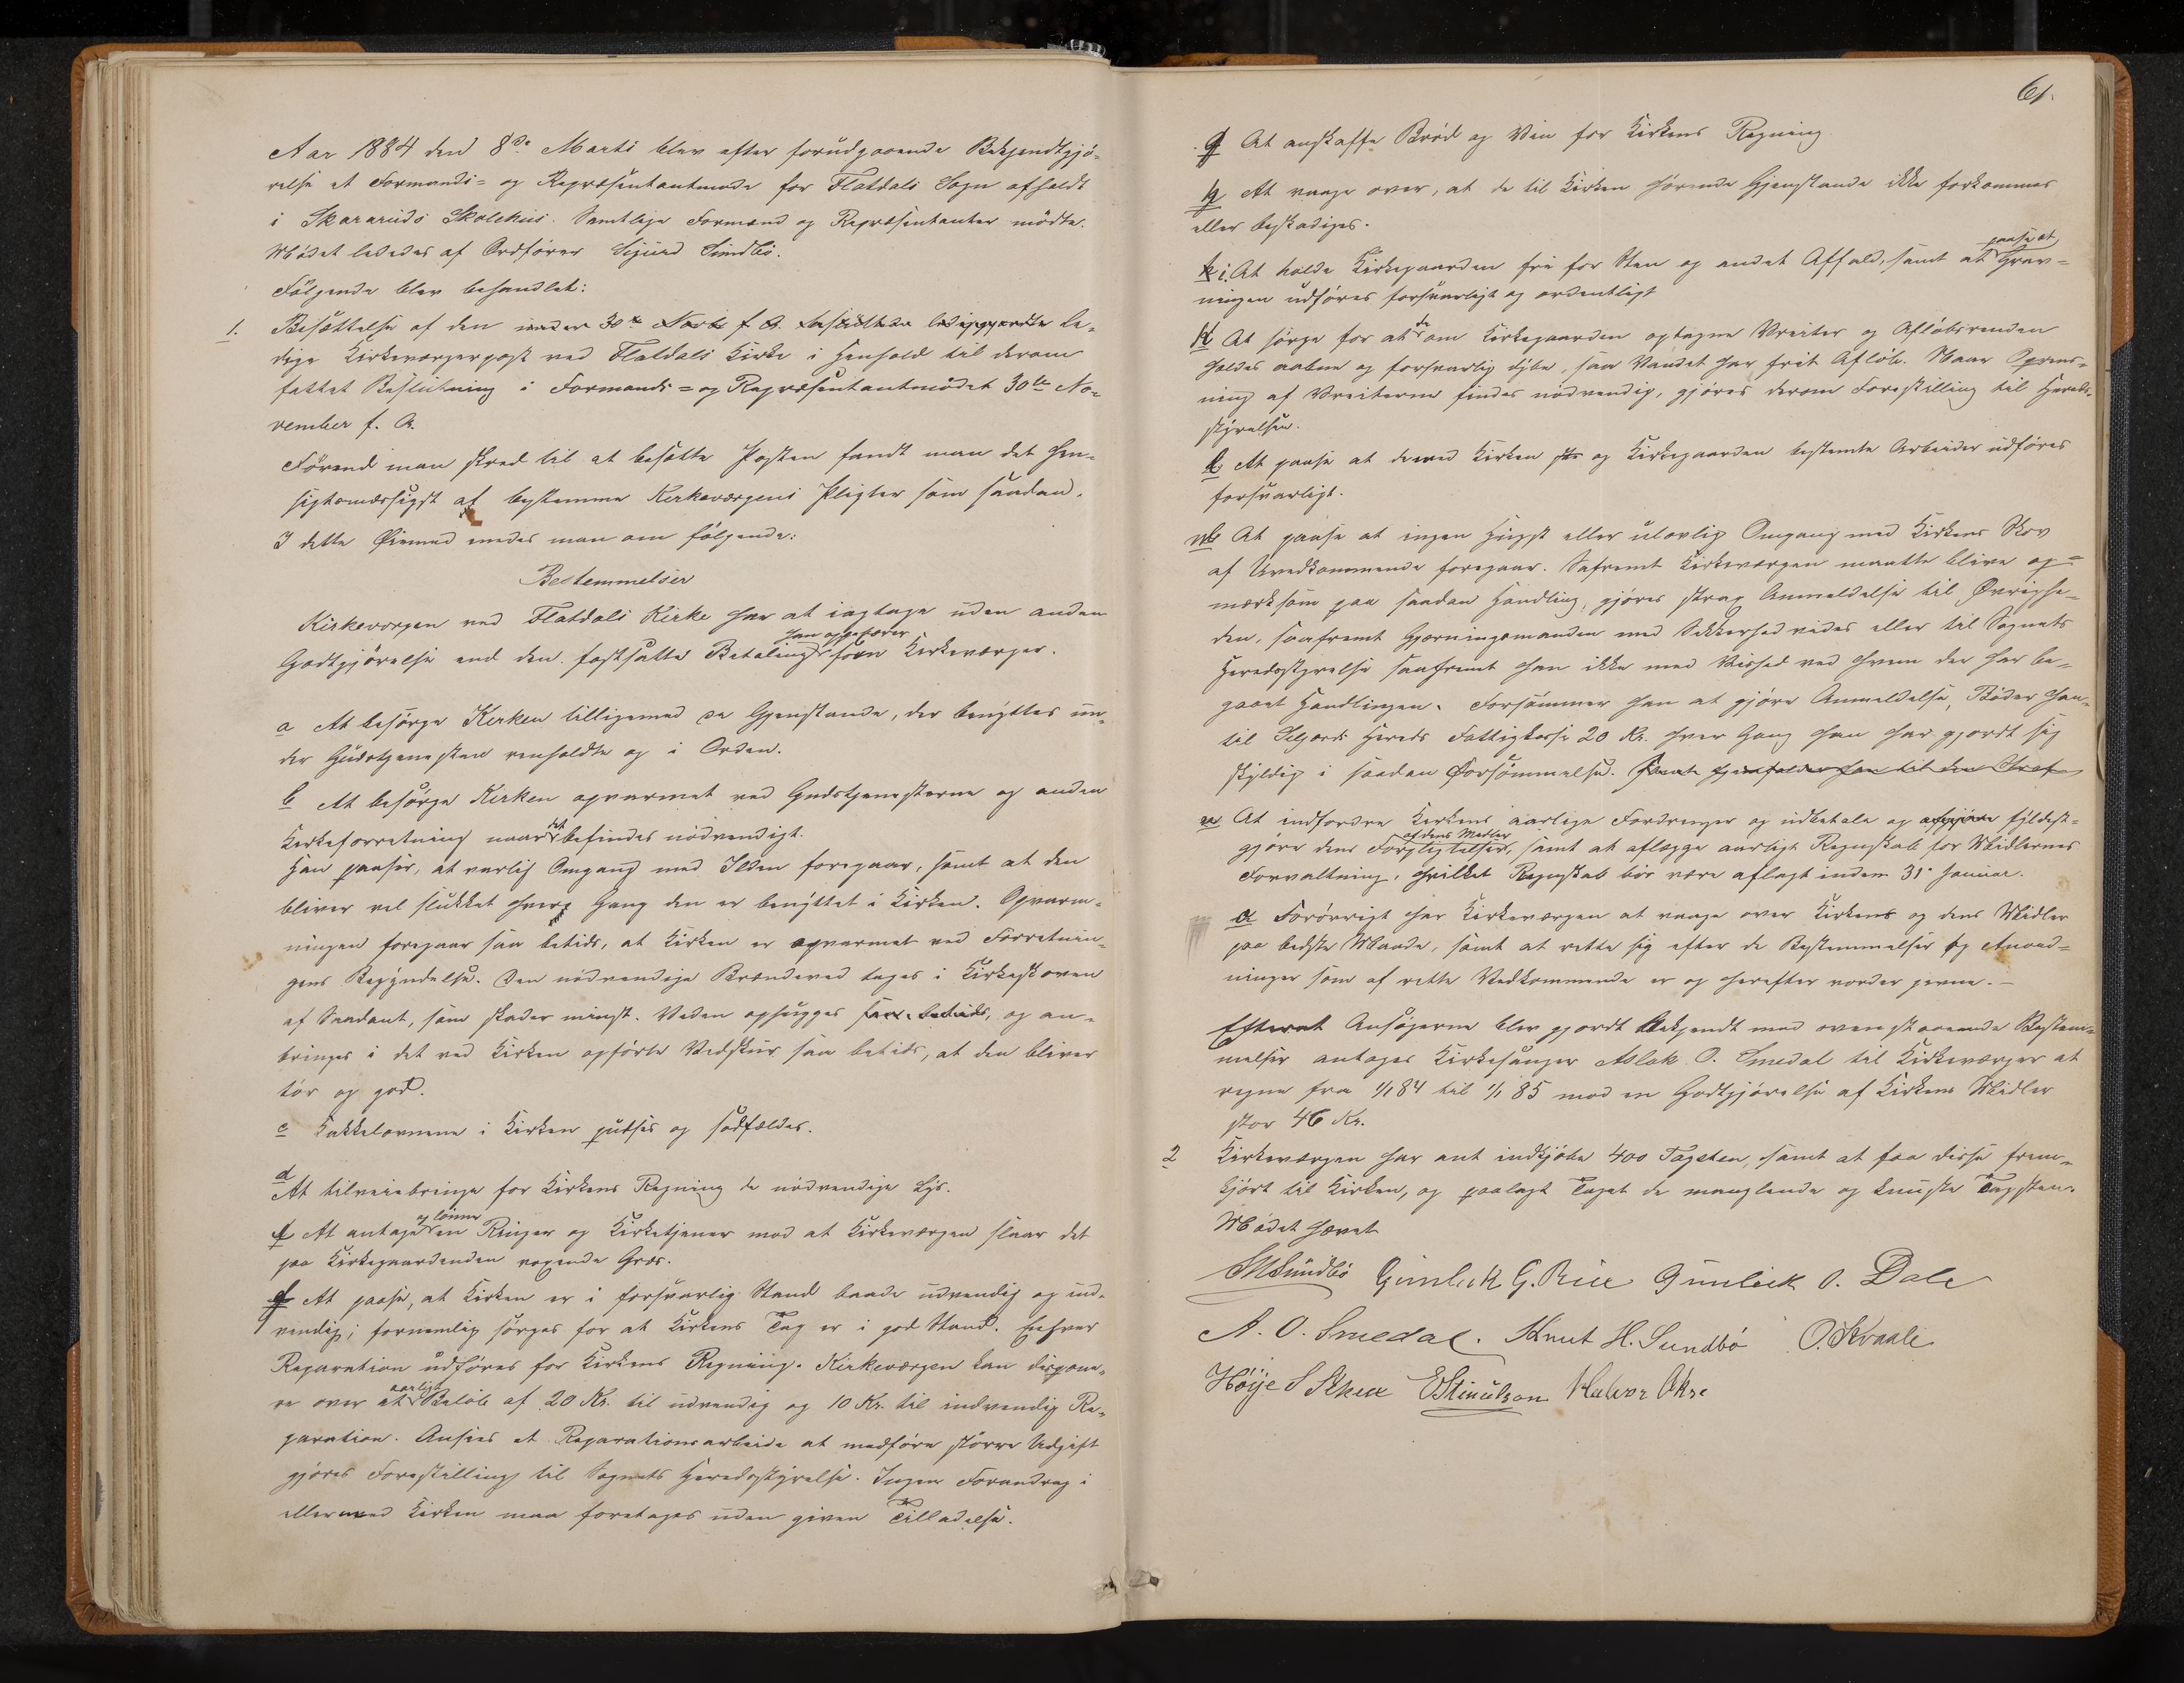 Aar 1884 den 8de Marts blev efter forudgaaende Bekjendtgjö-
relse et Formands- og Repræsentantmøde for Flatdals Sogn afholdt
i Skararuds Skolehus. Samtlige Formænd og Repræsentanter mödte.
Mödet lededes af Ordförer Sigurd Sundbö.
Fölgende blev behandlet:
1. Besættelse af den under 30te Novb f. A. le-
dige Kirkeværgerpost ved Flatdals Kirke i Henhold til derom
fattet Beslutning i Formands- og Repræsentantmödet 30te No-
vember f. A.
Förend man skred til at besætte Posten fandt man det hen-
sigtsmæssigst at bestemme Kirkeværgens Pligter som saadan.
I dette Øiemed enedes man om fölgende:
Bestemmelser
Kirkeværgen ved Flatdals Kirke har at iagtage uden anden
han oppebærer
Godtgjörelse end den fastsatte Betaling som Kirkeværger.
a At besörge Kirken tilligemed de Gjenstande, der benyttes un-
der Gudstjenesten renholdte og i Orden.
b At besörge Kirken opvarmet ved Gudstjenesterne og anden
Kirkeforretning naar det befindes nödvendigt.
Han paaser, at varlig Omgang med Ilden foregaar, samt at den
bliver vel slukket hver Gang den er benyttet i Kirken. Opvarm-
ningen foregaar saa betids, at Kirken er opvarmet ved Forretnin-
gens Begyndelse. Den nödvendige Brændeved tages i Kirkeskoven
af Saadant, som skader mindst. Veden ophugges saa betids, og an-
bringes i det ved Kirken opförte Vedskur saa betids, at den bliver
tör og god.
c Kakkelovnene i Kirken pudses og sodfældes.
d At tilveiebringe for Kirkens Regning de nödvendige Lys.
e At antage og lönne en Ringer og Kirketjener mod at Kirkeværgen slaar det
paa Kirkegaarden voxende Græs.
f At paase, at Kirken er i forsvarlig Stand baade udvendig og ind-
vendig; fornemlig sörges for at Kirkens Tag er i god Stand. Enhver
Reparation udföres for Kirkens Regning. Kirkeværgen kan dispone-
re over et aarligt Belöb af 20 Kr. til udvendig og 10 Kr. til indvendig Re-
paration. Ansees et Reparationsarbeide at medföre större Udgift
gjöres Forestilling til Sognets Heredsstyrelse. Ingen Forandring i
eller ved Kirken maa foretages uden given Tilladelse.
61.
g At anskaffe Bröd og Vin for Kirkens Regning
h At vaage over, at de til Kirken hörende Gjenstande ikke forkommes
eller beskadiges.
i. At holde Kirkegaarden fri for Sten og andet Affald, samt at paase at Grav-
ningen udföres forsvarligt og ordentligt
k At sörge for at de om Kirkegaarden optagne Vreiter og Aflöbsrenden
holdes aabne og forsvarlig dybe, saa Vandet har frit Aflöb. Naar Oprens-
ning af Vreiterne findes nödvendig, gjöres derom Forestilling til Hereds-
styrelsen.
l At paase at de ved Kirken og Kirkegaarden bestemte Arbeider udföres
forsvarligt.
m At paase at ingen Hugst eller ulovlig Omgang med Kirkens Skov
af Uvedkommende foregaar. Safremt Kirkeværgen maatte blive op-
mærksom paa saadan Handling, gjöres strax Anmeldelse til Øvrighe-
den, saafremt Gjerningsmanden med Sikkerhed vides eller til Sognets
Heredsstyrelse saafremt han ikke med Vished ved hvem der har be-
gaaet Handlingen. Forsömmer han at gjöre Anmeldelse, Böder han
til Seljords Hereds Fattigkasse 20 Kr. hver Gang han har gjordt sig
skyldig i saadan Forsömmelse. hjemfalder han til den Straf
n At indfordre Kirkens aarlige Fordringer og udbetale og afgjöre fyldest-
gjöre dens Forpligtelser af dens Midler, samt at aflægge aarligt Regnskab for Midlernes
Forvaltning, hvilket Regnskab bör være aflagt inden 31. Januar.
o Forövrigt har Kirkeværgen at vaage over Kirkens og dens Midler
paa bedste Maade, samt at rette sig efter de Bestemmelser og Anord-
ninger som af rette Vedkommende er og herefter vorder givne.-
Efterat Ansögerne blev gjordt bekjendt med ovenstaaende Bestem-
melser antages Kirkesanger Aslak O. Smedal til Kirkeværger at
regne fra 1/1 84 til 1/1 85 mod en Godtgjörelse af Kirkens Midler
stor 46 Kr.
2 Kirkeværgen har at indkjöbe 400 Tagsten, samt at faa disse frem-
kjört til Kirken, og paalagt Taget de manglende og knuste Tagsten.
Mödet hævet
SSundbö Gunleik G. Rue Gunleik O. Dale
A. O. Smedal. Knut H. Sundbö O. Kvaale
Höije S EStinulson Halvor Okse